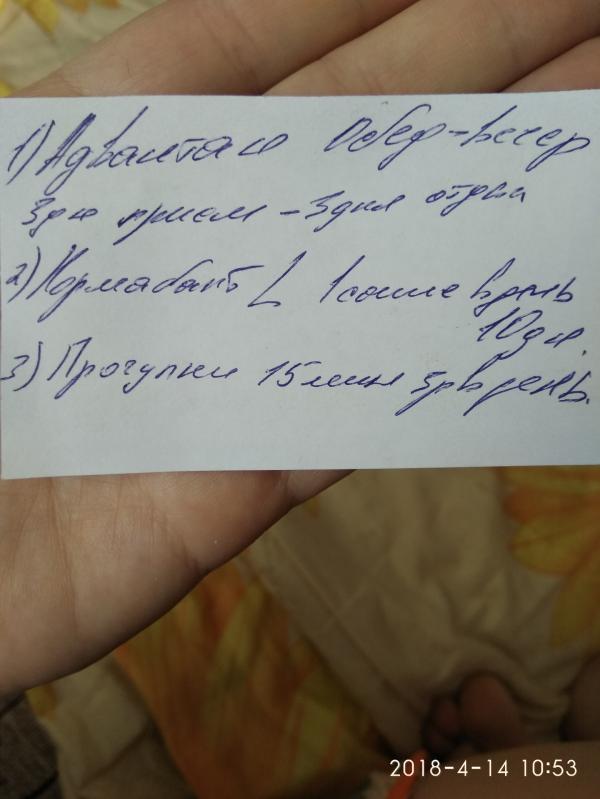 1) Адвантан Обед-вечер
3дн прием - 3дня отдых
2) Нормабакт L 1саше в день
10дн.
3) Прогулки 15мин 3р в день.
2018-4-14 10:53